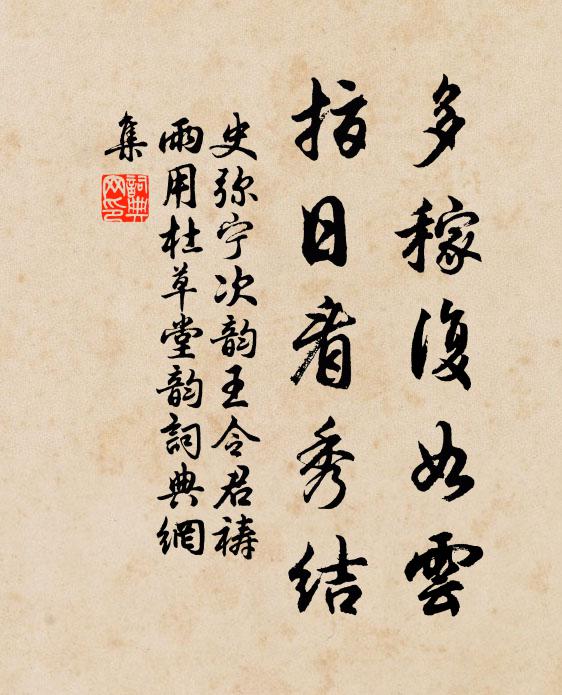 多稼復如雲
指日看秀结
史弥宁次韵王令君祷
雨用杜草堂韵詞典網
集
詞典
网印